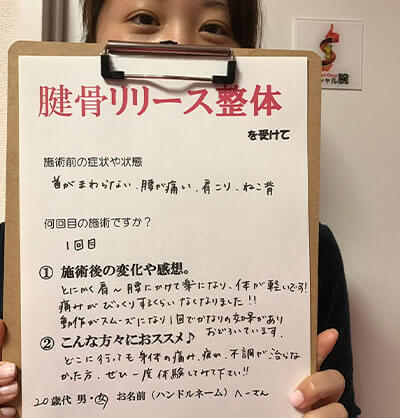 腱骨リリース整体
を受けて
施術前の症状や状態
首がまわらない、腰が痛い、肩こり、ねこ背
何回目の施術ですか?
1回目
① 施術後の変化や感想。
とにかく肩〜腰にかけて楽になり、体が軽いです!
痛みがびっくりするくらいなくなりました!!
動作がスムーズになり1回でかなりの効果があり
おどろいています。
② こんな方々におススメ♪
どこに行っても身体の痛み、疲れ、不調が治らな
かった方、ぜひ一度体験してみて下さい!!
20歳代 男・女 お名前(ハンドルネーム) へーさん
シャル腕